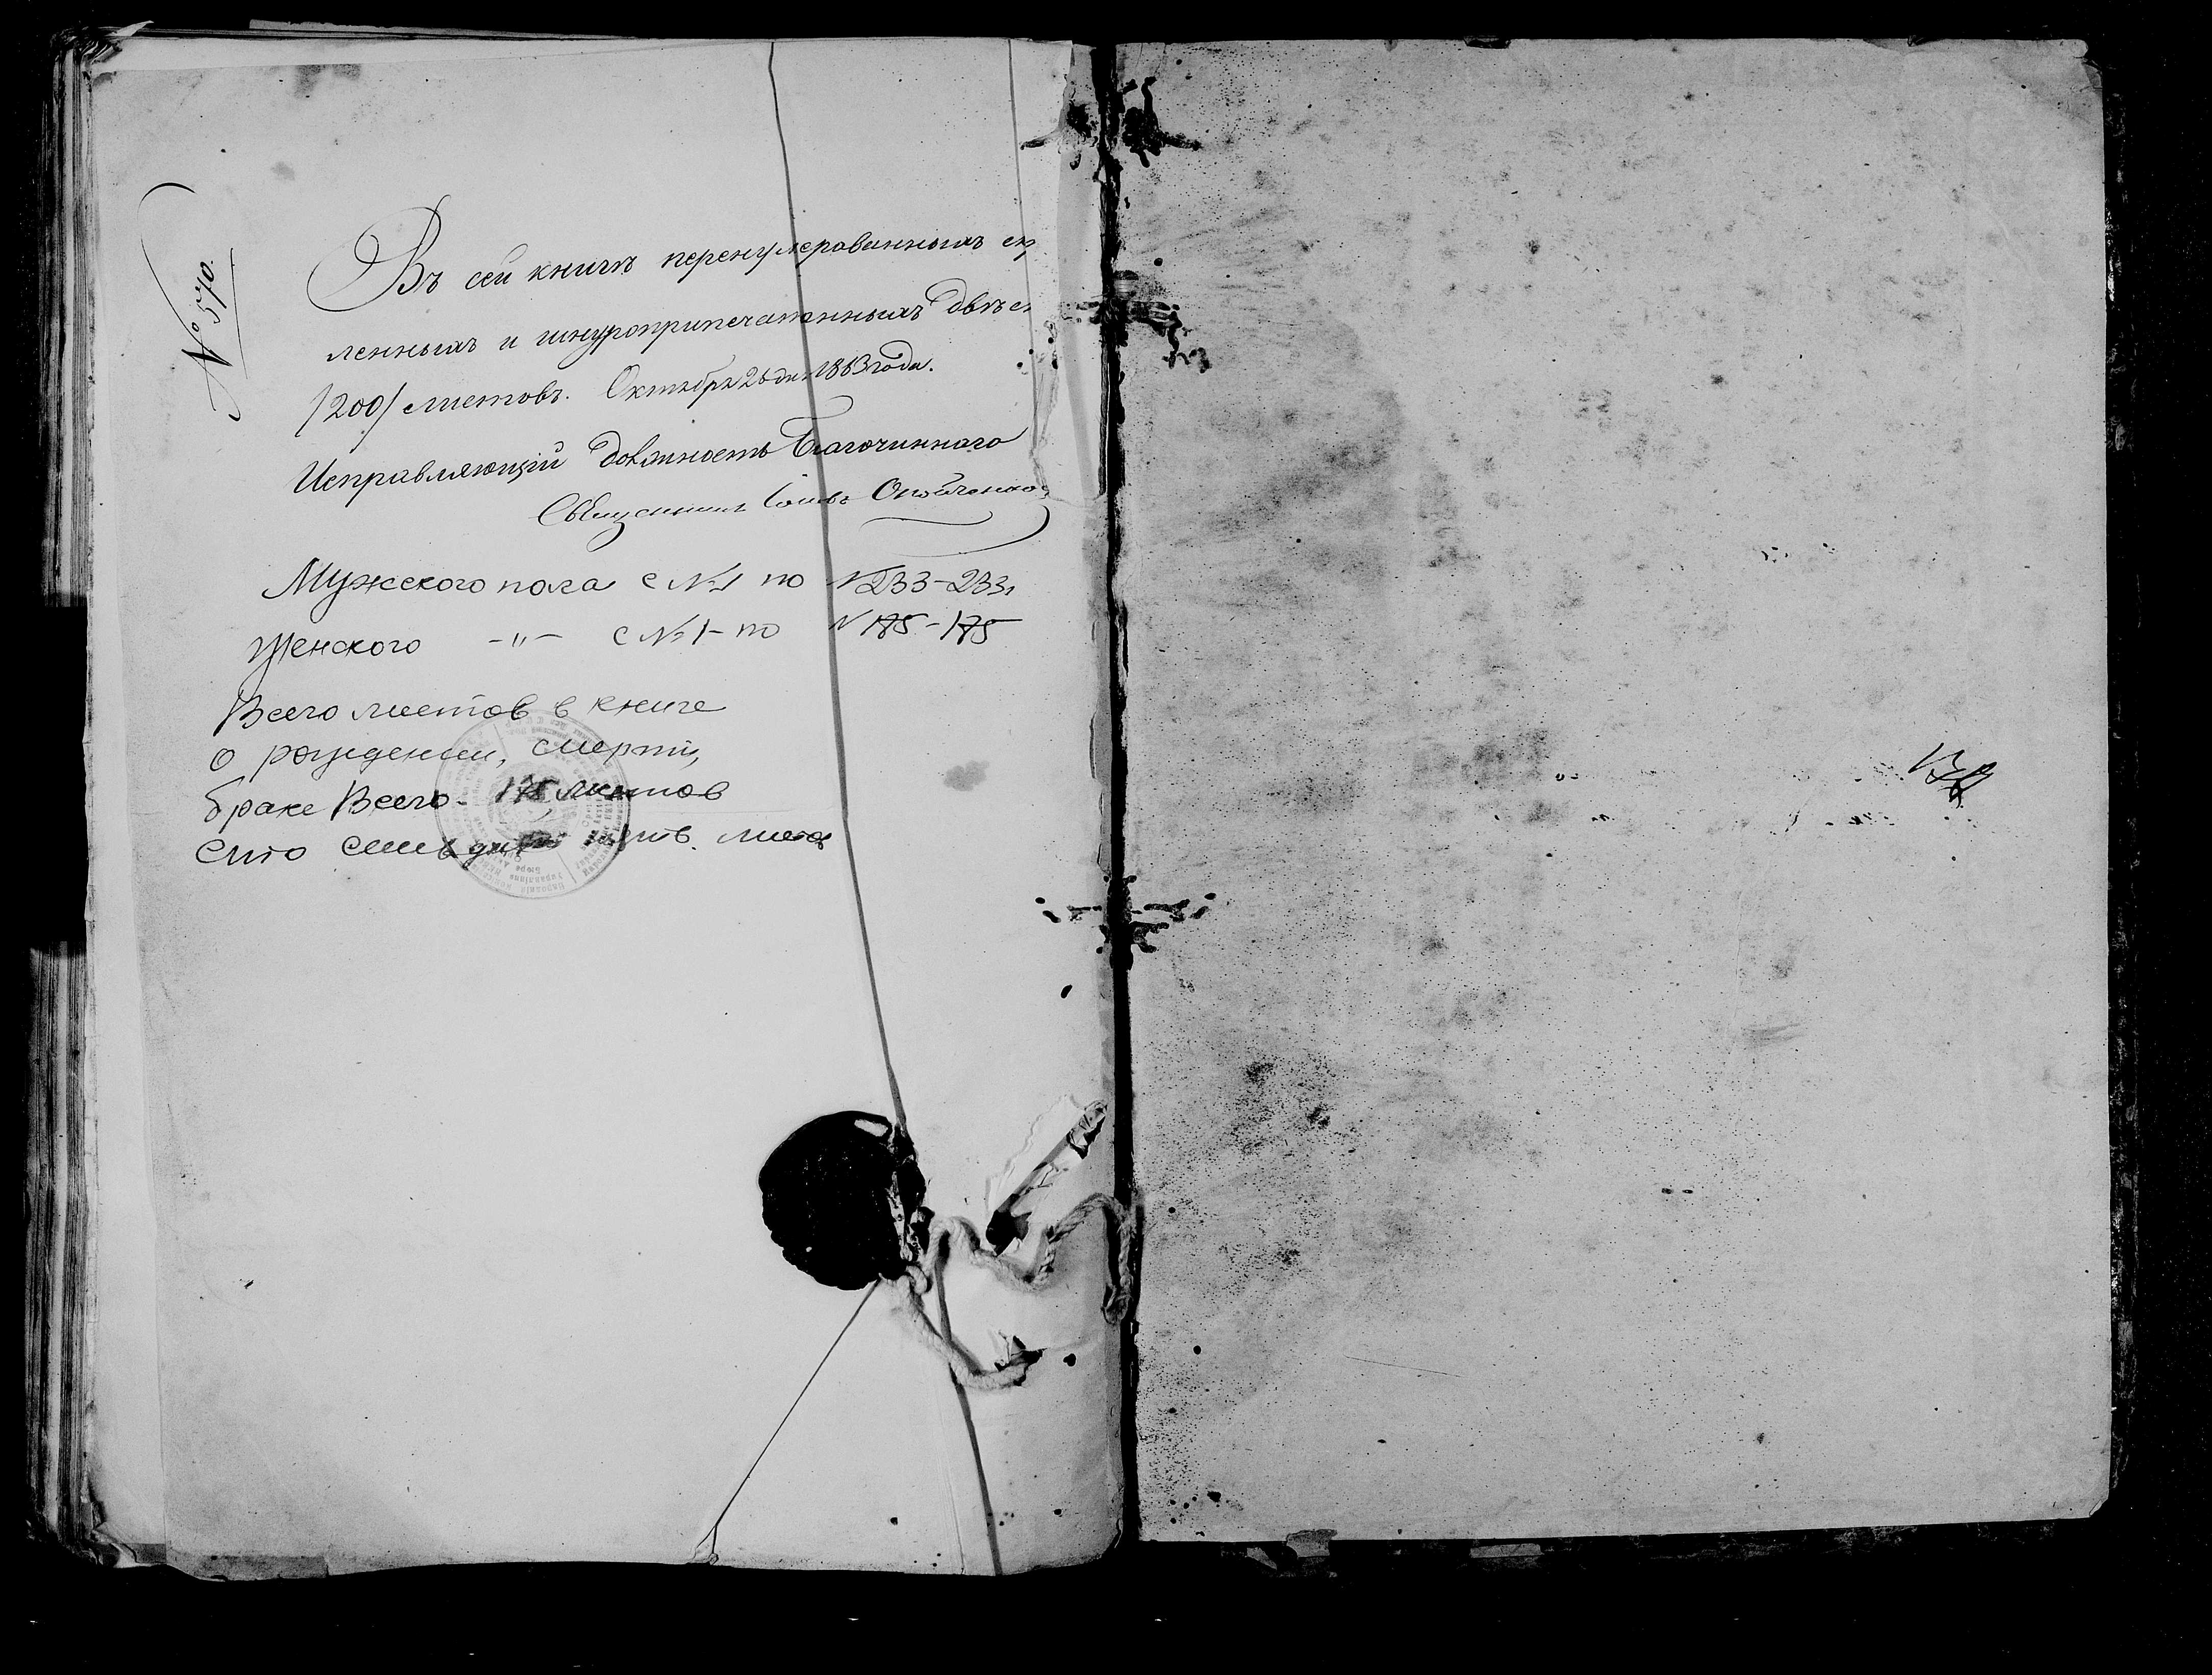 № 570.
Въ сей книгѣ перенумерованныхъ ск
ленныхъ и шнуроприпечатанныхъ двѣс
/200/ листовъ. Октября 26 дня 1863 года.
Исправляющій должность Благочиннаго
Священникъ
Мужского пола с №1 по №233-233
Женского -"- с №1-по № 175-175
Всего листов в книге
о рождении, смерти,
браке Всего - листов
Сто